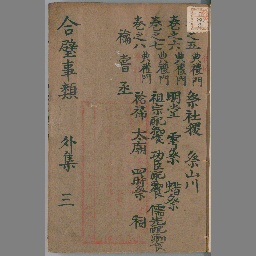 之五 典禮門 祭社稷 祭山川
卷之六 典禮門 明堂 雩祭 蜡祭
卷之七 典禮門 祖宗配饗 功臣配饗 儒先配饗
卷之八 典禮門 祫禘 太廟 四時祭
合璧事類 外集 三